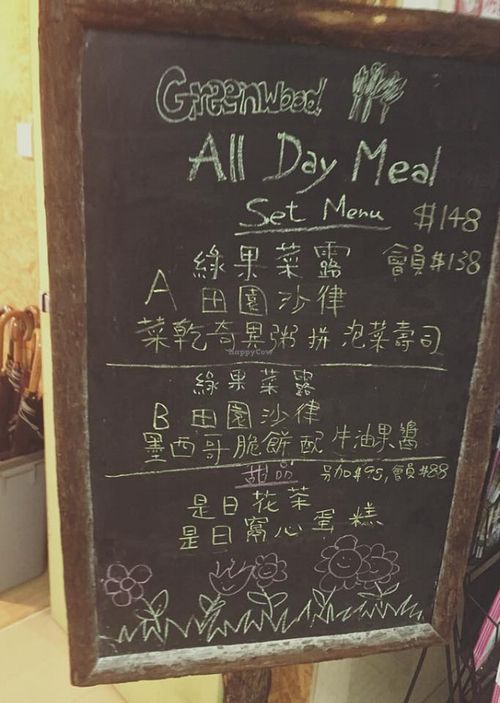 Greenwood
All Day Meal
Set Menu $148
綠果菜露 會員$138
A 田園沙律
菜乾奇異粥拼泡菜壽司
HappyCow
綠果菜露
B 田園沙律
墨西哥脆餅配牛油果醬
甜品 另加$95,會員$88
是日花茶
是日窩心蛋糕